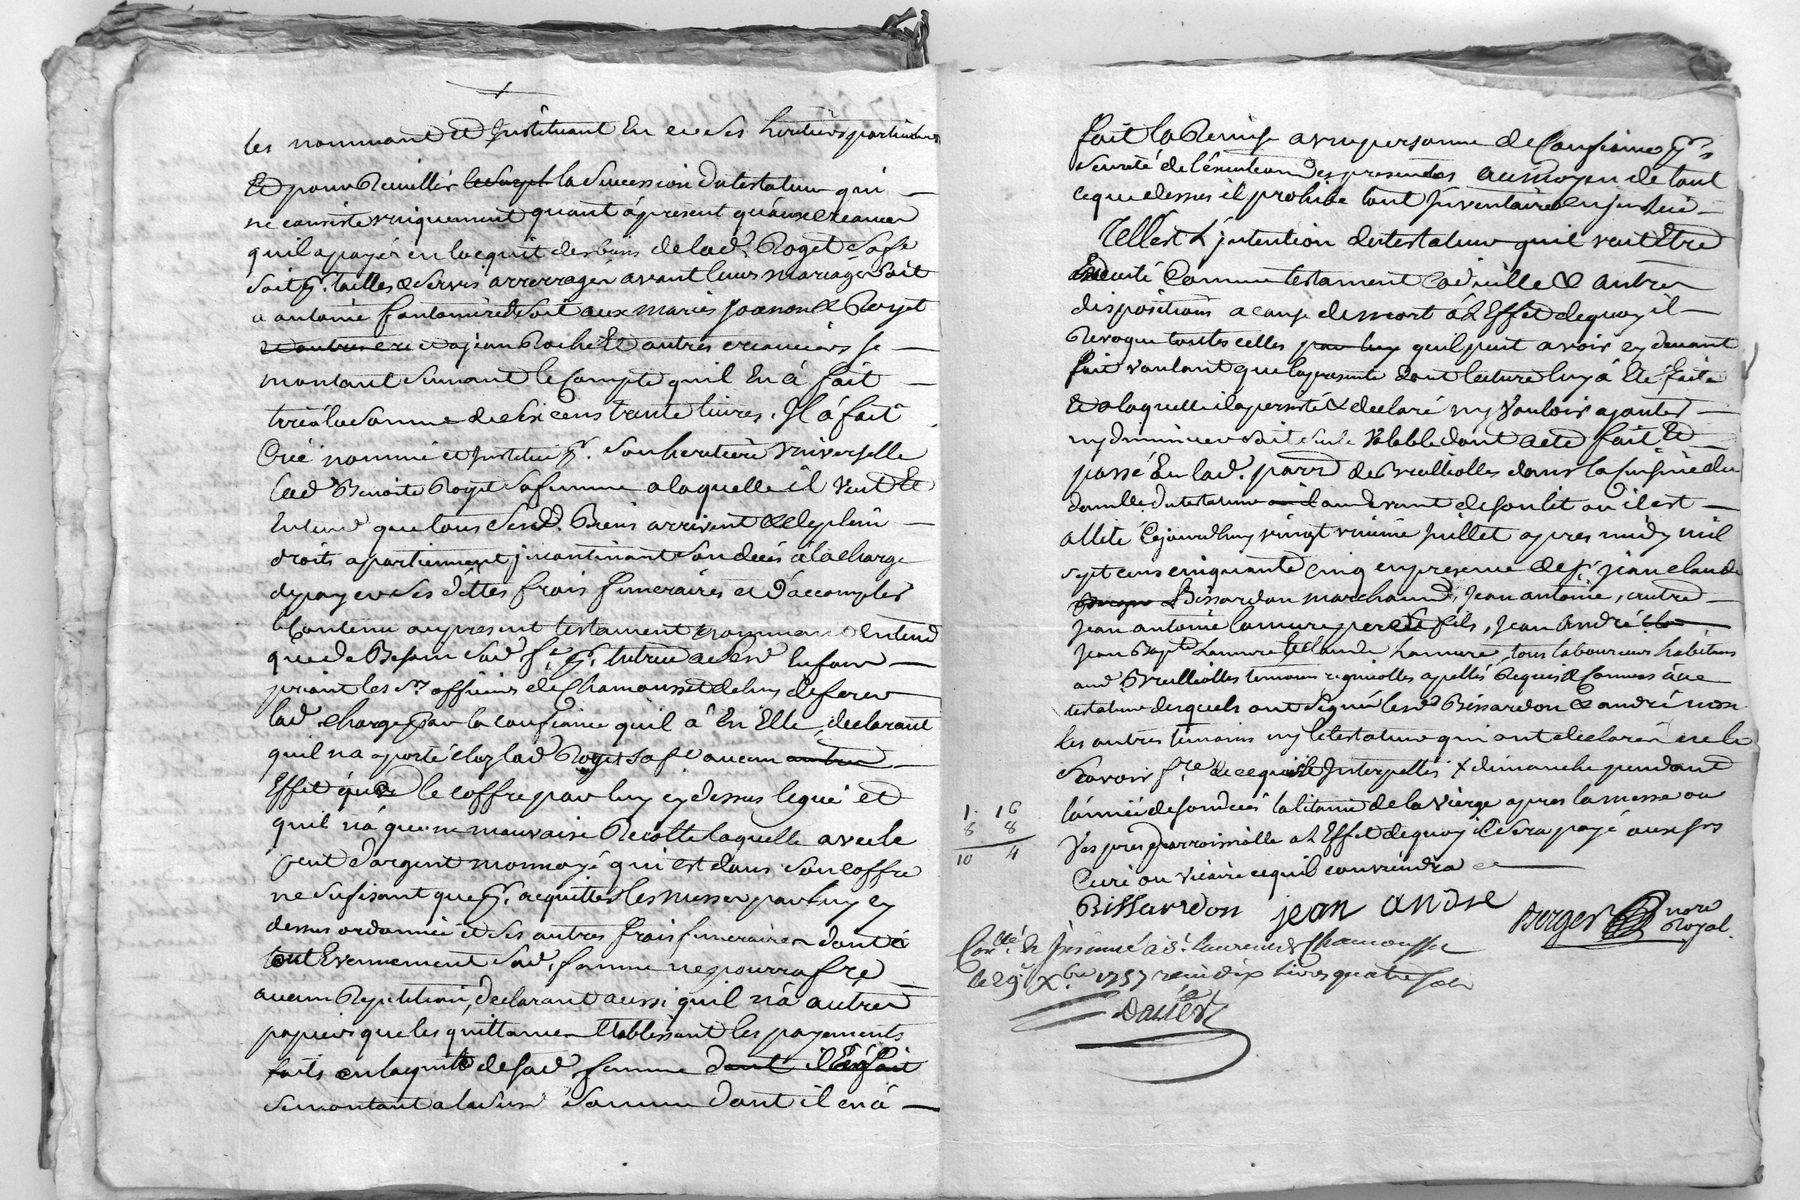 les nommant et Instituant En ce ses heritiers particuliers
Et pour Recuillir le surpl la Succession du testateur qui
ne consiste uniquement quant á present quaux creances
quil a payés en lacquit des biens de lad.e Roget sa fe
soit pr. tailles & servis arrerragés avant leurs mariage soit
a antoine fontanire & Soit aux mariés Joanon & Royet
et a jean Roche Et autres creanciers se
montant suivant le Compte quil En á fait
á la Somme de Six cens trante livres, Il á fait
Créé nommé et Institué pr. Son heritiere Universelle
lad.e Benoite Roget sa femme a laquelle il Veut Et
Entend que tous sesd. Biens arrivent & de plein
droits apartiennent incontinant Son decés á la charge
de payer ses dettes frais funeraires et d'accomplir
le Contenu au present testament Entend
que de Besoin Sad. fe. pr. tutrice a sesd. Enfans
priant les srs. officiers de Chamousset de luy deferer
lad. charge par la confiance quil á En Elle, declarant
quil na aporté chez lad. Roget sa fe. aucun autre
Effet que le coffre par luy cy dessus legué et
quil ná que une mauvaise Recolte laquelle avec le
peut d'argent monnoyé qui est dans Son coffre
ne sufisant que pr. acquitter les messes par luy cy
dessus ordonnée et ses autres frais funeraires dont á
tout Evennement Sad. femme ne pourra fre
aucun Repetition, declarant aussi quil ná autres
papiers que les quittances Etablissant les payements
faits en lacquit de sad. femme dont il En fait
se montant a la susd. Somme dont il en á
fait la Remise a une personne de Confiance pr. la
seureté de l'execution des presentes au moyen de tout
ce que dessus il prohibe tout Inventaire en justice
Tell'est L'jntention du testateur quil veut Etre
Executé Comme testament Codicille & autres
dispositions a cause de mort á L'Effet de quoy il
Revoque toutes celles par luy quil peut avoir cy devant
fait voulant que la presente dont lecture luy á Eté faite
Et a laquelle il a persisté & declaré ny Vouloir ajouter
ny diminuer soit seule Valable dont acte fait Et
passé En lad. parr.e de Brulliolles dans la Cuisine du
domille du testateur au devant de son lit ou il est
allité Cejourdhuy vingt uniéme Juillet apres midy mil
sept cens cinquante Cinq en presence de sr. jean claude
Bissardon marchand, Jean antoine, autre
Jean antoine Lamure pere & fils, Jean André
Jean Bapt. Lamure & Claude Lamure, tous laboureurs habitans
aud. Brulliolles temoins regnicolles apellés Requis & Connus dud.
testateur desquels ont Signé lesd. Bissardon & andré non
les autres temoins ny le testateur qui ont declarés ne le
Scavoir fre de ce Interpellés x dimanche pendant
l'année de son decés la litanie de la vierge apres la messe ou
Vespres parroissialle a L'Effet de quoy il sera payé aux srs
Curé ou vicaire ce quil conviendra
1. 16
8 8
10 4
Bissardon jean andre Berger nore
Royal.
Conllé & Insinué á St. Laurent de Chamousset
le 29 Xbre 1757 recu dix livres quatre sols